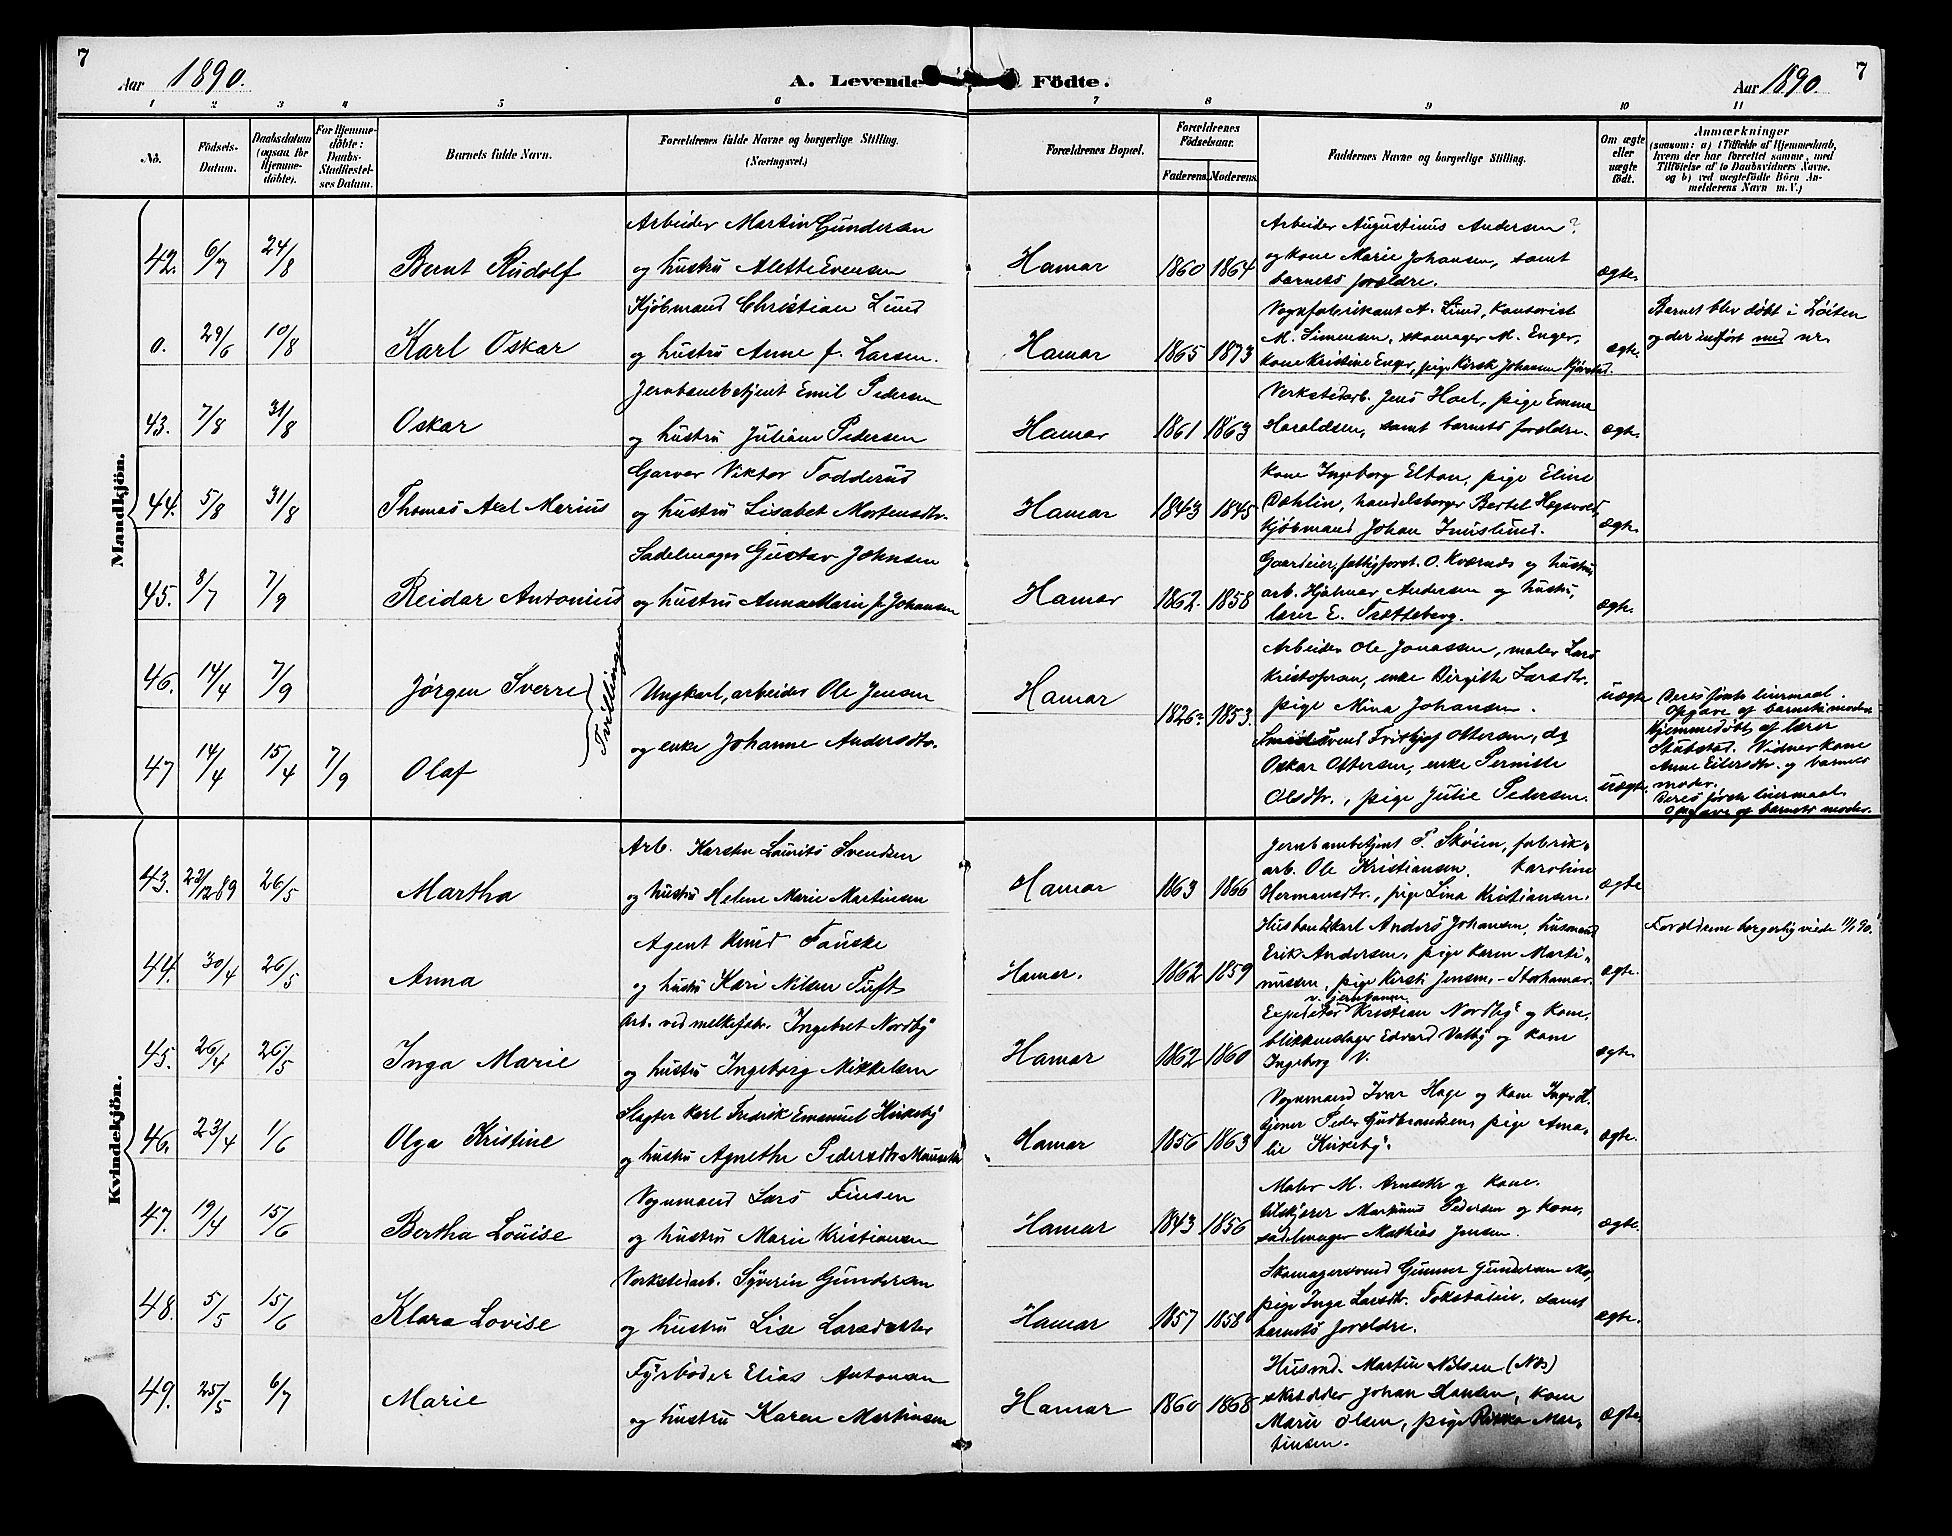 7
Aar 1890.
A. Levende Födte.
Aar 1890.
7
1 2 3 4 5 6 7 8 9 10 11
No.
Födsels-
Datum.
Daabsdatum
(ogsaa for
Hjemme-
döbte).
For Hjemme-
döbte:
Daabs-
Stadfæstel-
ses Datum.
Barnets fulde Navn.
Forældrenes fulde Navne og borgerlige Stilling.
(Næringsvei.)
Forældrenes Bopæl.
Forældrenes
Födselsaar.
Faderens. Moderens.
Faddernes Navne og borgerlige Stilling.
Om ægte
eller
uægte
födt.
Anmærkninger
(saasom: a) i Tilfælde af Hjemmedaab,
hvem der har forrettet samme, med
Tilföielse af to Daabsvidners Navne.
og b) ved uægtefödte Börn An-
melderens Navn m. V.)
Mandkjön.
Arbeider Martin Gundersen
42. 6/7 24/8 Bernt Rudolf og hustru Alette Evensen Hamar 1860 1864
Arbeider Augustinus Andersen?
og kone Marie Johansen, samt
barnets forældre. ægte.
Kjøbmand Christian Lund
0. 29/6 10/8 Karl Oskar og hustru Anne f. Larsen. Hamar 1865 1873
Vognfabrikant A. Lund, kontorist
M. Simensen, skomager M. Enger,
kone Kristine Enger, pige Kirsk Johansen ægte.
Barnet blev døbt i Løiten
og der indført med nr.
Jernbanebetjent Emil Pedersen
43. 7/8 31/8 Oskar og hustru Juliane Pedersen Hamar 1861 1863
Verkstedarb. Jens Hoel, pige Emma
Haraldsen, samt barnets forældre. ægte.
Garver Viktor Fodderud
44. 5/8 31/8 Thomas Axel Marius og hustru Lisabet Mortensdtr. Hamar 1843 1845
Kone Ingeborg Elton, pige Eline
Dæhlin, handelsborger Bertel Hagsvold,
kjøbmand Johan ægte.
Sadelmager Gustav Johnsen
45. 8/7 7/9 Reidar Antonius og hustru Anna Marie f. Johansen Hamar 1862. 1858
Gaardeier, fattigforst. O. Kværnes og hustru,
arb. Hjalmar Andersen og hustru,
lærer E. Trætteberg. ægte.
46. 14/4 7/9 Jørgen Sverre Tvillinger Ungkarl, arbeider Ole Jensen Hamar 1826? 1853.
Arbeider Ole Jonassen, maler Lars
Kristofersen, enke Birgitte Larsdtr.
pige Mina Johansen. uægte
Deres første leiermaal.
Opgave af barnets moder.
47 14/4 15/4 7/9 Olaf og enke Johanne Andersdtr.
Smedsvend Frithjof Ottersen, do
Oskar Ottersen, enke Pernille
Olsdtr., pige Julie Pedersen. uægte.
Hjemmedøbt af lærer
Stubstad. Vidner kone
Anne Eilersdtr. og barnets
moder.
Deres første leiermaal.
Opgave af barnets moder.
Kvindekjön.
Arb. Karsten Laurits Svendsen
43. 23/12 89 26/5 Martha og hustru Helene Marie Martinsen Hamar 1863 1866
Jernbanebetjent P. Skøien, fabrik-
arb. Ole Kristiansen. Karoline
Hermansdtr., pige Lina Kristiansen. ægte
Agent Knud Fauske
44. 30/4 26/5 Anna og hustru Kari Nilsen Tuft Hamar. 1862 1859
Husbondkarl Anders Johansen, husmand
Erik Andersen, pige Karen Marti-
nussen, pige Kirsti Jensen, - Storhamar. ægte.
Forældrene borgerlig viede 11/1 90.
Arb. ved melkefabr. Ingebret Nordby
45. 26/4 26/5 Inga Marie og hustru Ingeborg Mikkelsen Hamar 1862 1860
v. jernbanen
Expeditør Kristian Nordby og kone,
blikkenslager Edvard Valby og kone
Ingeborg V. ægte.
Slagter Karl Fredrik Emanuel Kirkeby
46. 23/4 1/6 Olga Kristine og hustru Agnethe Pedersdtr. Hamar 1856 1863
Vognmand Ivar Hage og kone Ingerd H.
tjener Peder Gudbrandsen, pige Ama-
lie Kirkeby. ægte.
Vognmand Lars Finsen
47. 19/4 15/6 Bertha Louise og hustru Marie Kristiansen Hamar 1843 1856
Maler M. Arneseth og kone.
tilskjærer Martinus Pedersen og kone,
sadelmager Mathias Jensen. ægte.
Verkstedarb. Syverin Gundersen
48. 5/5 15/6 Klara Lovise og hustru Lise Larsdatter Hamar 1857 1858
Skomagersvend Gunner Gundersen Mo,
pige Inga Larsdtr. samt
barnets forældre. ægte.
Fyrbøder Elias Antonsen
49. 25/5 6/7 Marie og hustru Karen Martinsen Hamar 1860 1868
Husmd. Martin Nilsen (Næs)
skrædder Johan Hansen, kone
Marie Olsen, pige Mar-
tinsen. ægte.